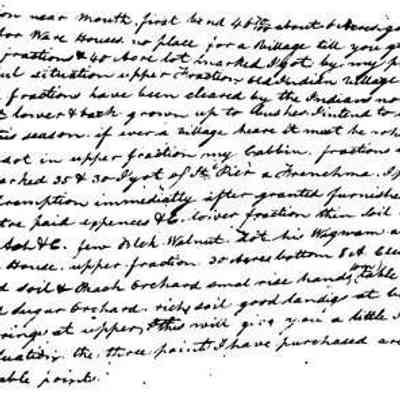 on near Mouth. first bend 40 about 6 Acres, g
for Ware Houses. no place for a Village till you g
fractions & 40 Acre lot marked I got by my p
ful situation upper Fraction, old Indian Village
fractions have been cleared by the Indians no
lower & back grown up to bushes. I intend to
this season. if ever a village heare it must be wh
dot in upper fraction my Cabbin. fractions
marked 35 & 30 I got of St Pier a Frenchma. I
preemption immediatly after granted furnishe
paid expences &c. lower fraction thin soil
Ash &c. few Blck Walnut. dot his Wigwam a
House. upper fraction 30 Acres bottom 8 A. Cle
d soil & Peach Orchard small rise handy table
Sugar Orchard. rich soil good landigs at b
rings at upper, & this will give you a little
uation. the three points I have purchased are
able points.